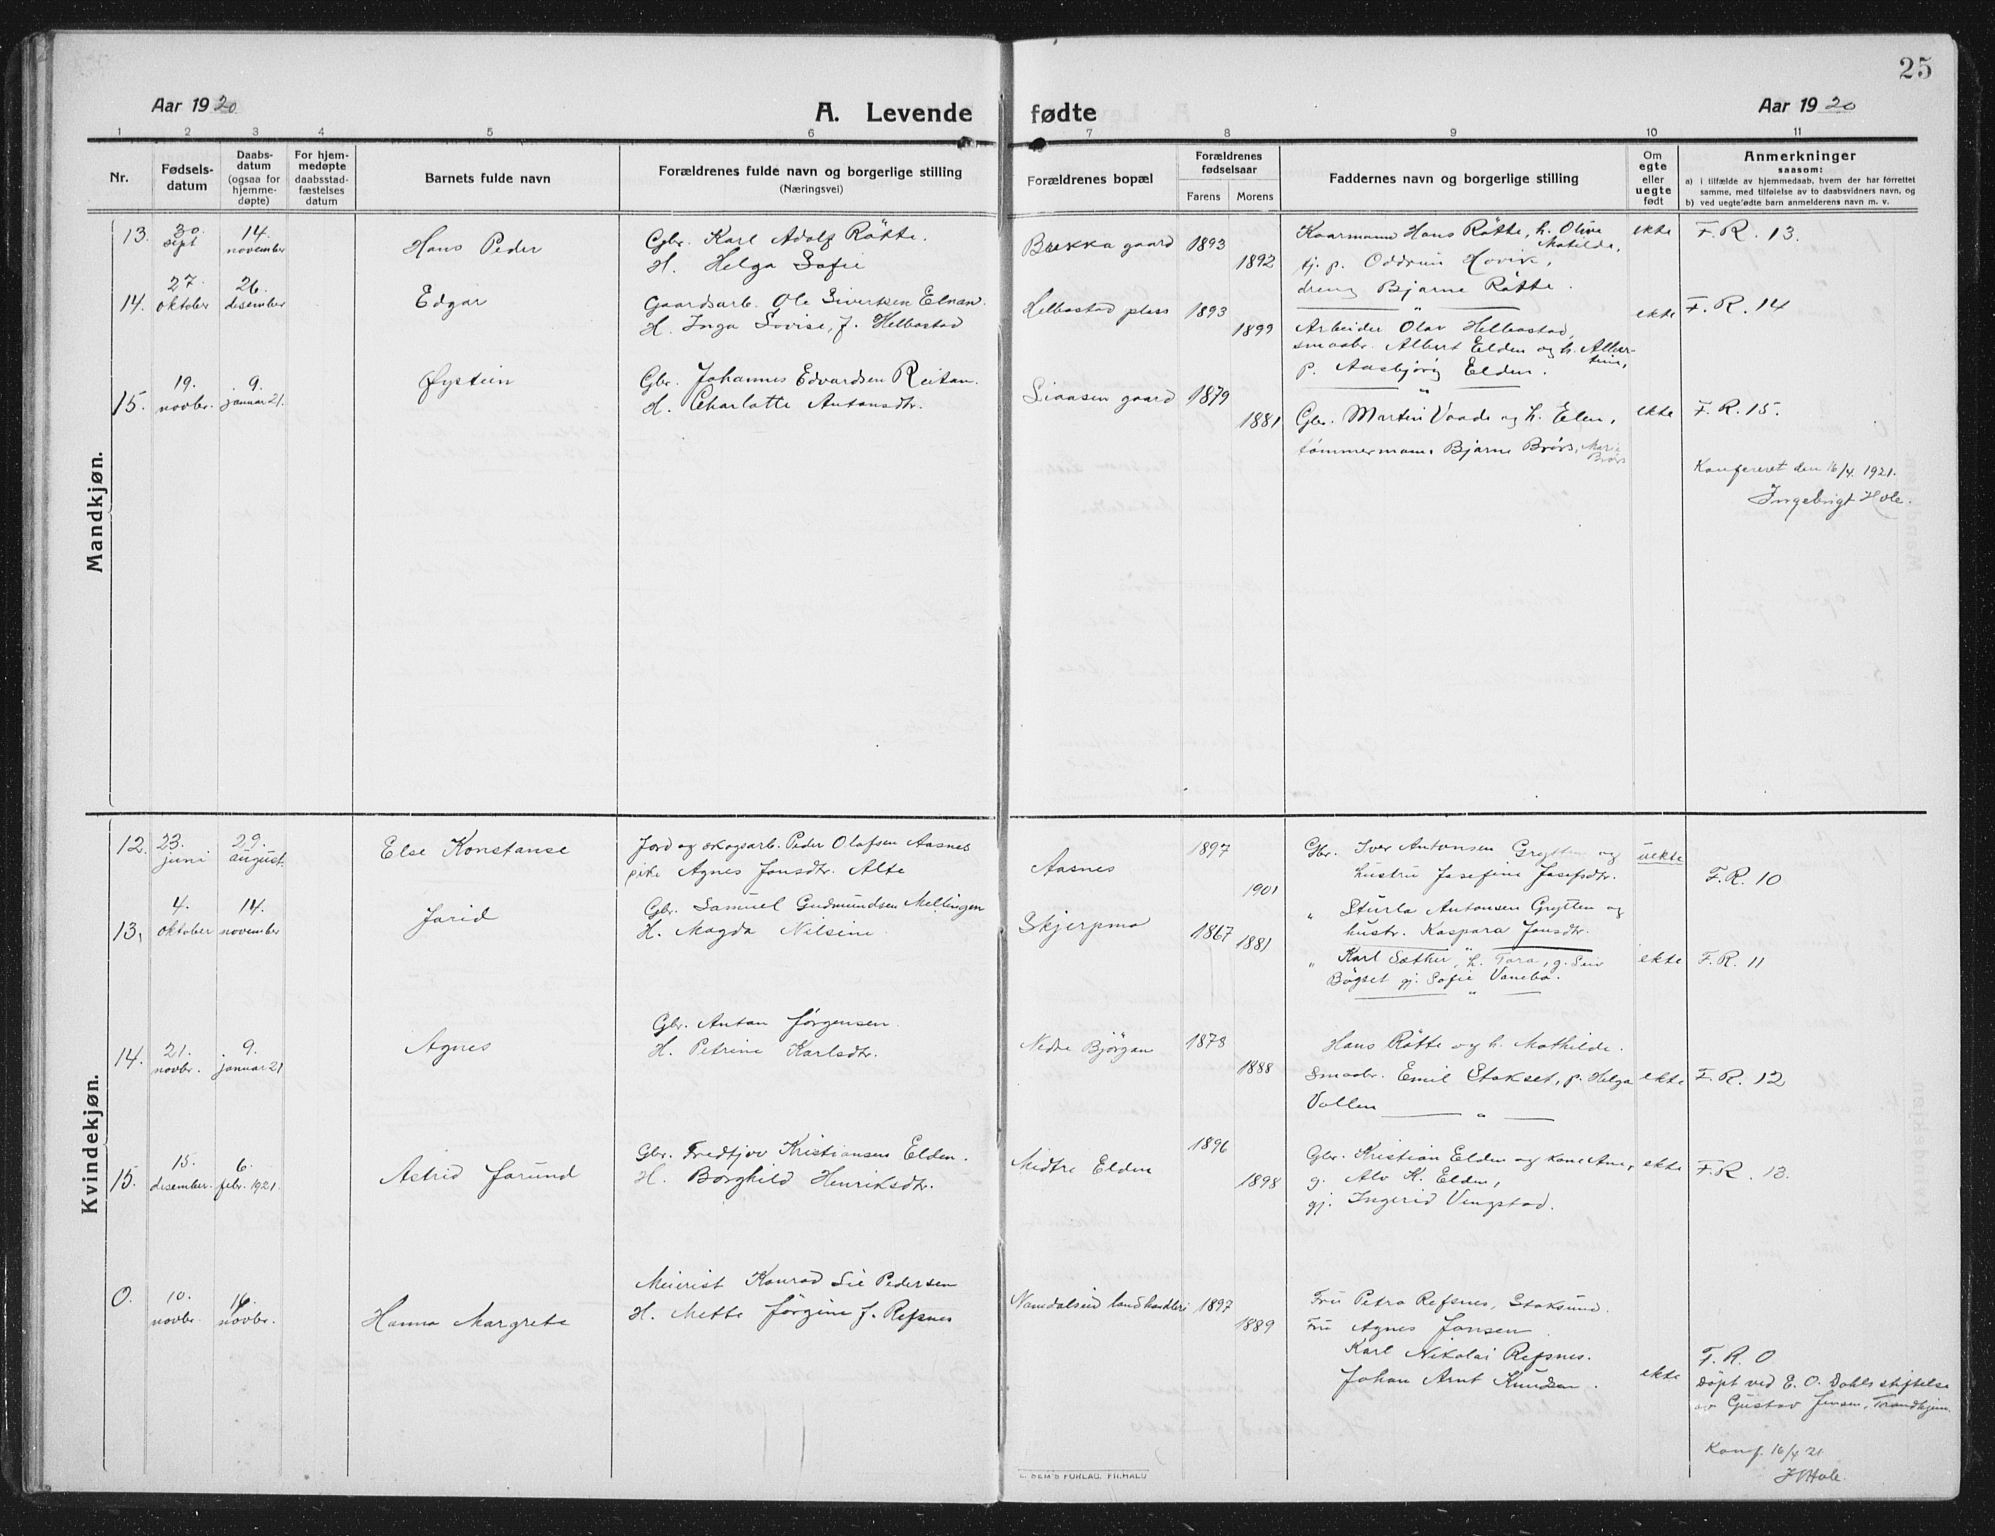 25
Aar 1920
A. Levende fødte
Aar 1920
1 2 3 4 5 6 7 8 9 10 11
Nr.
Fødsels-
datum
Daabs-
datum
(ogsaa for
hjemme-
døpte)
For hjem-
medøpte
daabsstad-
fæstelses
datum
Barnets fulde navn
Forældrenes fulde navn og borgerlige stilling
(Næringsvei)
Forældrenes bopæl
Forældrenes
fødselsaar
Farens Morens
Faddernes navn og borgerlige stilling
Om
egte
eller
uegte
født
Anmerkninger
saasom:
a) i tilfælde av hjemmedaab, hvem der har forrettet
samme, med tilføielse av to daabsvidners navn, og
b) ved uegtefødte barn anmelderens navn m. v.
Mandkjøn.
13. 30. sept 14. november Hans Peder
Gbr. Karl Adolf Råtte.
H. Helga Sofie
Brekka gaard 1893 1892
Kaarmann Hans Råtte, h. Olive
Matilde,
tj. p. Oddrun Hovik,
dreng Bjarne Råtte.
ekte F. R. 13.
14. 27. oktober 26. desember Edgar
Gaardsarb. Ole Sivertsen Elnan.
H. Inga Lovise, f. Helbostad
Helbostad plass 1893 1899
Arbeider Olav Helbostad,
smaabr. Albert Elden og h. Alber-
tine,
p. Aasbjørg Elden.
ekte F. R. 14
15. 19. novbr. 9. januar 21. Øystein
Gbr. Johannes Edvardsen Reitan.
H. Charlotte Antonsdtr.
Liaasen gaard 1879 1881
Gbr. Martin Vaade og h. Elen,
tømmermann Bjarne Brørs, Marie
Brørs
ekte F. R. 15.
Konfereret den 16/4 1921.
Ingebrigt Hole.
Kvindekjøn.
12. 23. juni 29. august. Else Konstanse
Jord og skogsarb. Peder Olafsen Aasnes
pike Agnes Jonsdtr. Alte
Aasnes 1897 1901
Gbr. Iver Antonsen Grytten og
hustru Josefine Josefsdtr.
" Sturla Antonsen Grytten og
hustr. Kaspara Jonsdtr.
uekte F. R. 10
13. 4. oktober 14. november Jorid
Gbr. Samuel Gudmundsen Mellingen
H. Magda Nilsine.
Skjerpmo 1867 1881
" Karl Sæther, h. Tora, g. Siv
Bøgset gj. Sofie Vanebo.
ekte F. R. 11
14. 21. novbr. 9. januar 21 Agnes
Gbr. Anton Jørgensen.
H. Petrine Karlsdtr.
Nedre Bjørgan 1878 1888
Hans Råtte og h. Mathilde.
Smaabr. Emil Stokset, p. Helga
Vollen
ekte F. R. 12
15. 15. desember. 6. febr. 1921. Astrid Jorund
Gbr. Fredtjov Kristiansen Elden.
H. Borghild Henriksdtr.
Midtre Elden 1896 1898
Gbr. Kristian Elden og kone Ane,
g. Alv K. Elden,
gj. Ingerid Vengstad.
ekte F. R. 13.
0. 10. novbr. 16. novbr. Hanna Margrete
Meierist Konrad Lie Pedersen
H. Mette Jørgine f. Refsnes
Namdalseid landhandleri 1897 1889
Fru Petra Refsnes, Stoksund.
Fru Agnes Jonsen.
Karl Nikolai Refsnes.
Johan Arnt Knudsen.
ekte
F. R. 0
Døpt ved E. O. Dahls stiftelse
av Gustav Jensen, Trondhjem.
Konf. 16/4 21
I Hole.
E. SEM'S FORLAG, FR.HALD